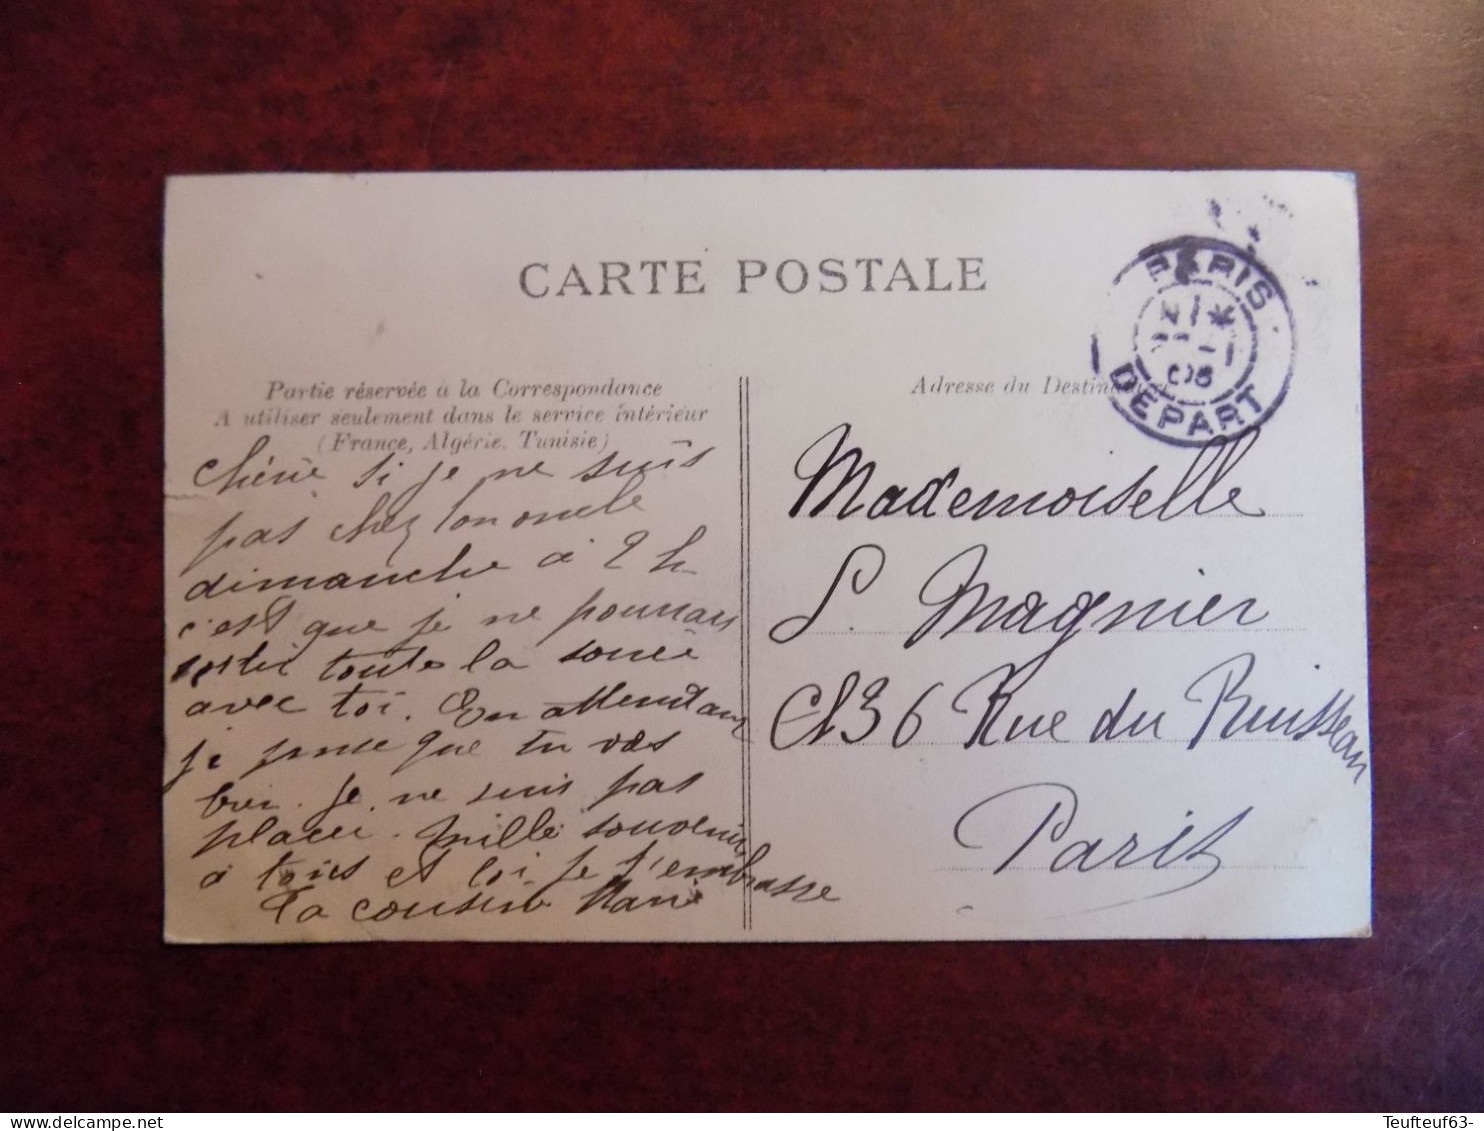 CARTE POSTALE
PARIS
DEPART
Partie réservée à la Correspondance
A utiliser seulement dans le service intérieur
(France, Algérie, Tunisie)
Adresse du Destinataire
chérie si je ne suis
pas chez ton oncle
dimanche à 2 h
c'est que je ne pourrais
rester toute la soirée
avec toi. En attendant
je pense que tu vas
bien. je ne suis pas
placée. mille souvenirs
à tous et toi je t'embrasse
Ta cousine Marie
Mademoiselle
S. Magnier
136 Rue du Ruisseau
Paris
Teufteuf63-